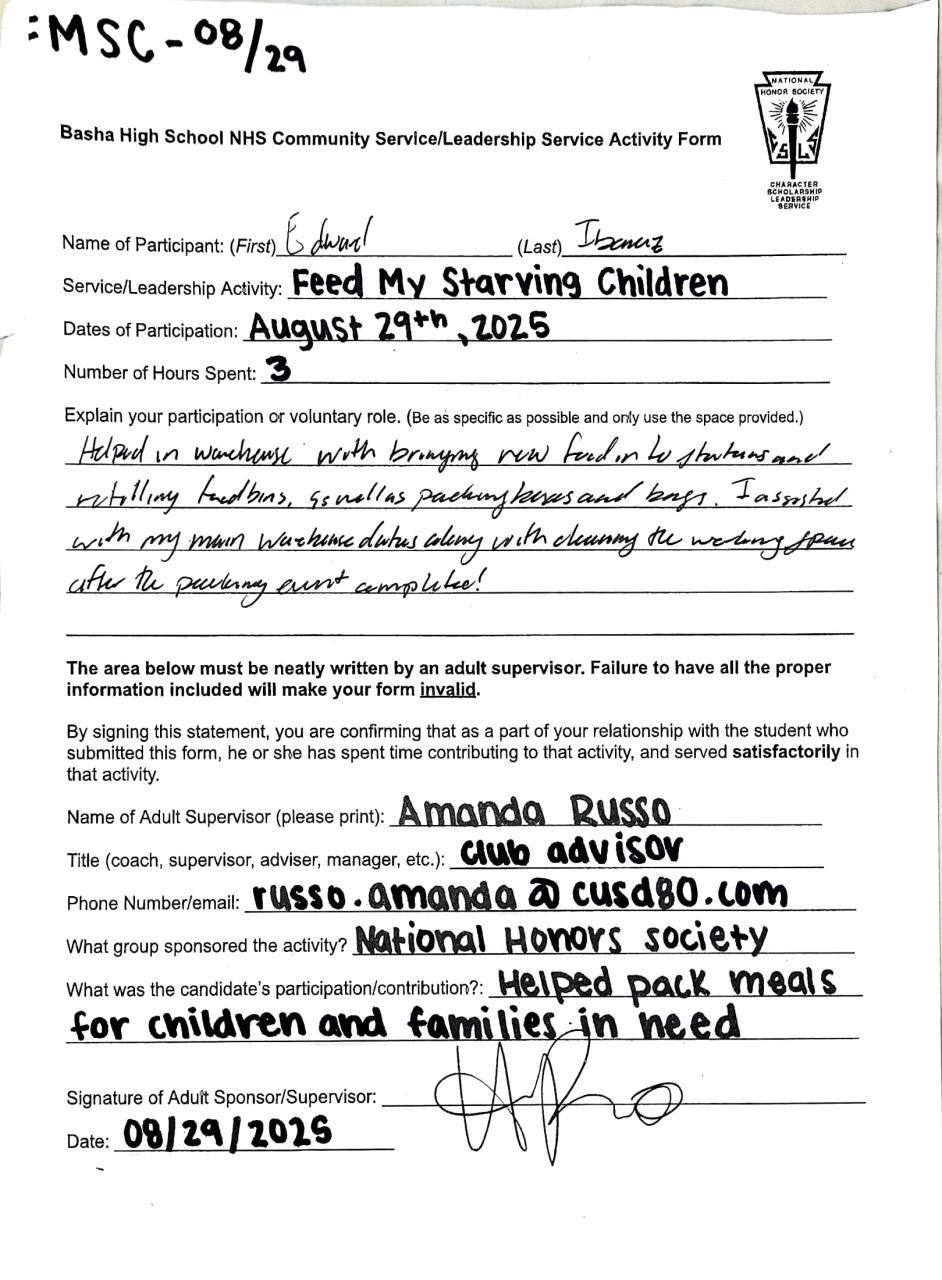 :MSC-08/29
NATIONAL
HONOR SOCIETY
C S L S
CHARACTER
SCHOLARSHIP
LEADERSHIP
SERVICE
Basha High School NHS Community Service/Leadership Service Activity Form
Name of Participant: (First) Edward (Last) Ibanez
Service/Leadership Activity: Feed My Starving Children
Dates of Participation: August 29th, 2025
Number of Hours Spent: 3
Explain your participation or voluntary role. (Be as specific as possible and only use the space provided.)
Helped in warehouse with bringing new food in to stations and
refilling food bins, as well as packing boxes and bags. I assisted
with my main warehouse duties along with cleaning the working space
after the packing event completed!
The area below must be neatly written by an adult supervisor. Failure to have all the proper
information included will make your form invalid.
By signing this statement, you are confirming that as a part of your relationship with the student who
submitted this form, he or she has spent time contributing to that activity, and served satisfactorily in
that activity.
Name of Adult Supervisor (please print): Amanda Russo
Title (coach, supervisor, adviser, manager, etc.): club advisor
Phone Number/email: russo.amanda@cusd80.com
What group sponsored the activity? National Honors society
What was the candidate's participation/contribution?: Helped pack meals
for children and families in need
Signature of Adult Sponsor/Supervisor:
Date: 08/29/2025